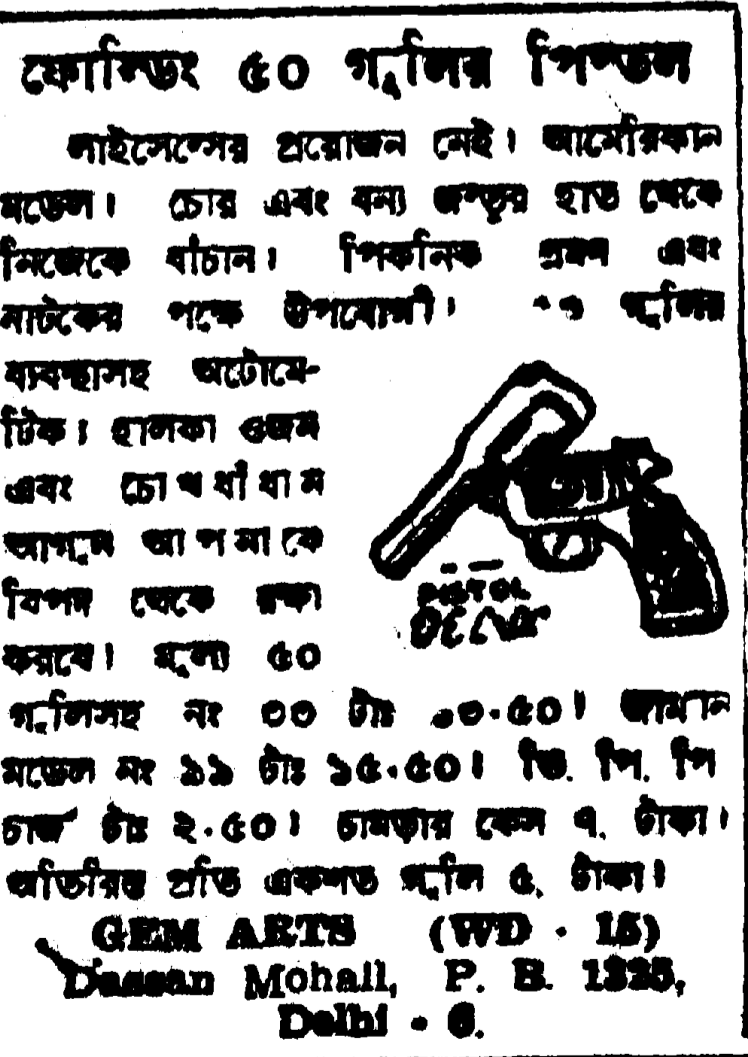 ফোল্ডিং ৫০ গুলির পিস্তল
লাইসেন্সের প্রয়োজন নেই। আমেরিকান
মডেল। চোর এবং বন্য জন্তুর হাত থেকে
নিজেকে বাঁচান। পিকনিক ভ্রমণ এবং
নাটকের পক্ষে উপযোগী। গুলির
ব্যবস্থাসহ অটোমে-
টিক। হালকা ওজন
এবং চোখধাঁধান
আগুন আপনাকে
বিপদ থেকে রক্ষা
করবে। মূল্য ৫০
গুলিসহ নং ৩৩ টাঃ জার্মান
মডেল নং ৯৯ টাঃ ১৫.৫০। ভি. পি. পি
চার্জ টাঃ ২.৫০। চামড়ার কেস ৭, টাকা।
অতিরিক্ত প্রতি একশত গুলি ৫, টাকা।
PISTOL
GEM ARTS (WD - 15)
Dassan Mohall, P. B. 1325,
Delhi - 6.